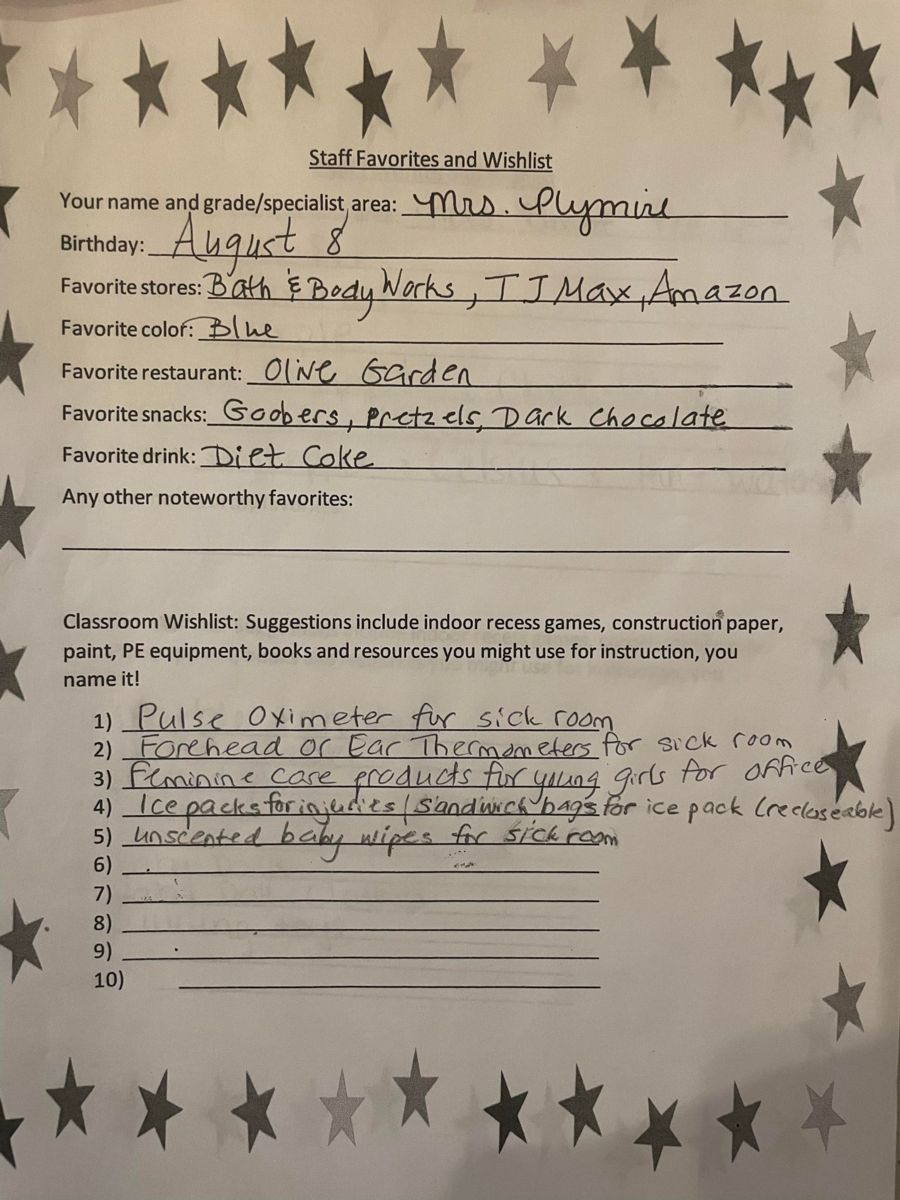 Staff Favorites and Wishlist
Your name and grade/specialist area: Mrs. Plymire
Birthday: August 8
Favorite stores: Bath & Body Works, TJ Max, Amazon
Favorite color: Blue
Favorite restaurant: Olive Garden
Favorite snacks: Goobers, pretzels, Dark Chocolate
Favorite drink: Diet Coke
Any other noteworthy favorites:
Classroom Wishlist: Suggestions include indoor recess games, construction paper,
paint, PE equipment, books and resources you might use for instruction, you
name it!
1) Pulse Oximeter for sick room
2) Forehead or Ear Thermometers for sick room
3) Feminine care products for young girls for office
4) Ice packs for injuries / sandwich bags for ice pack (recloseable)
5) unscented baby wipes for sick room
6)
7)
8)
9)
10)